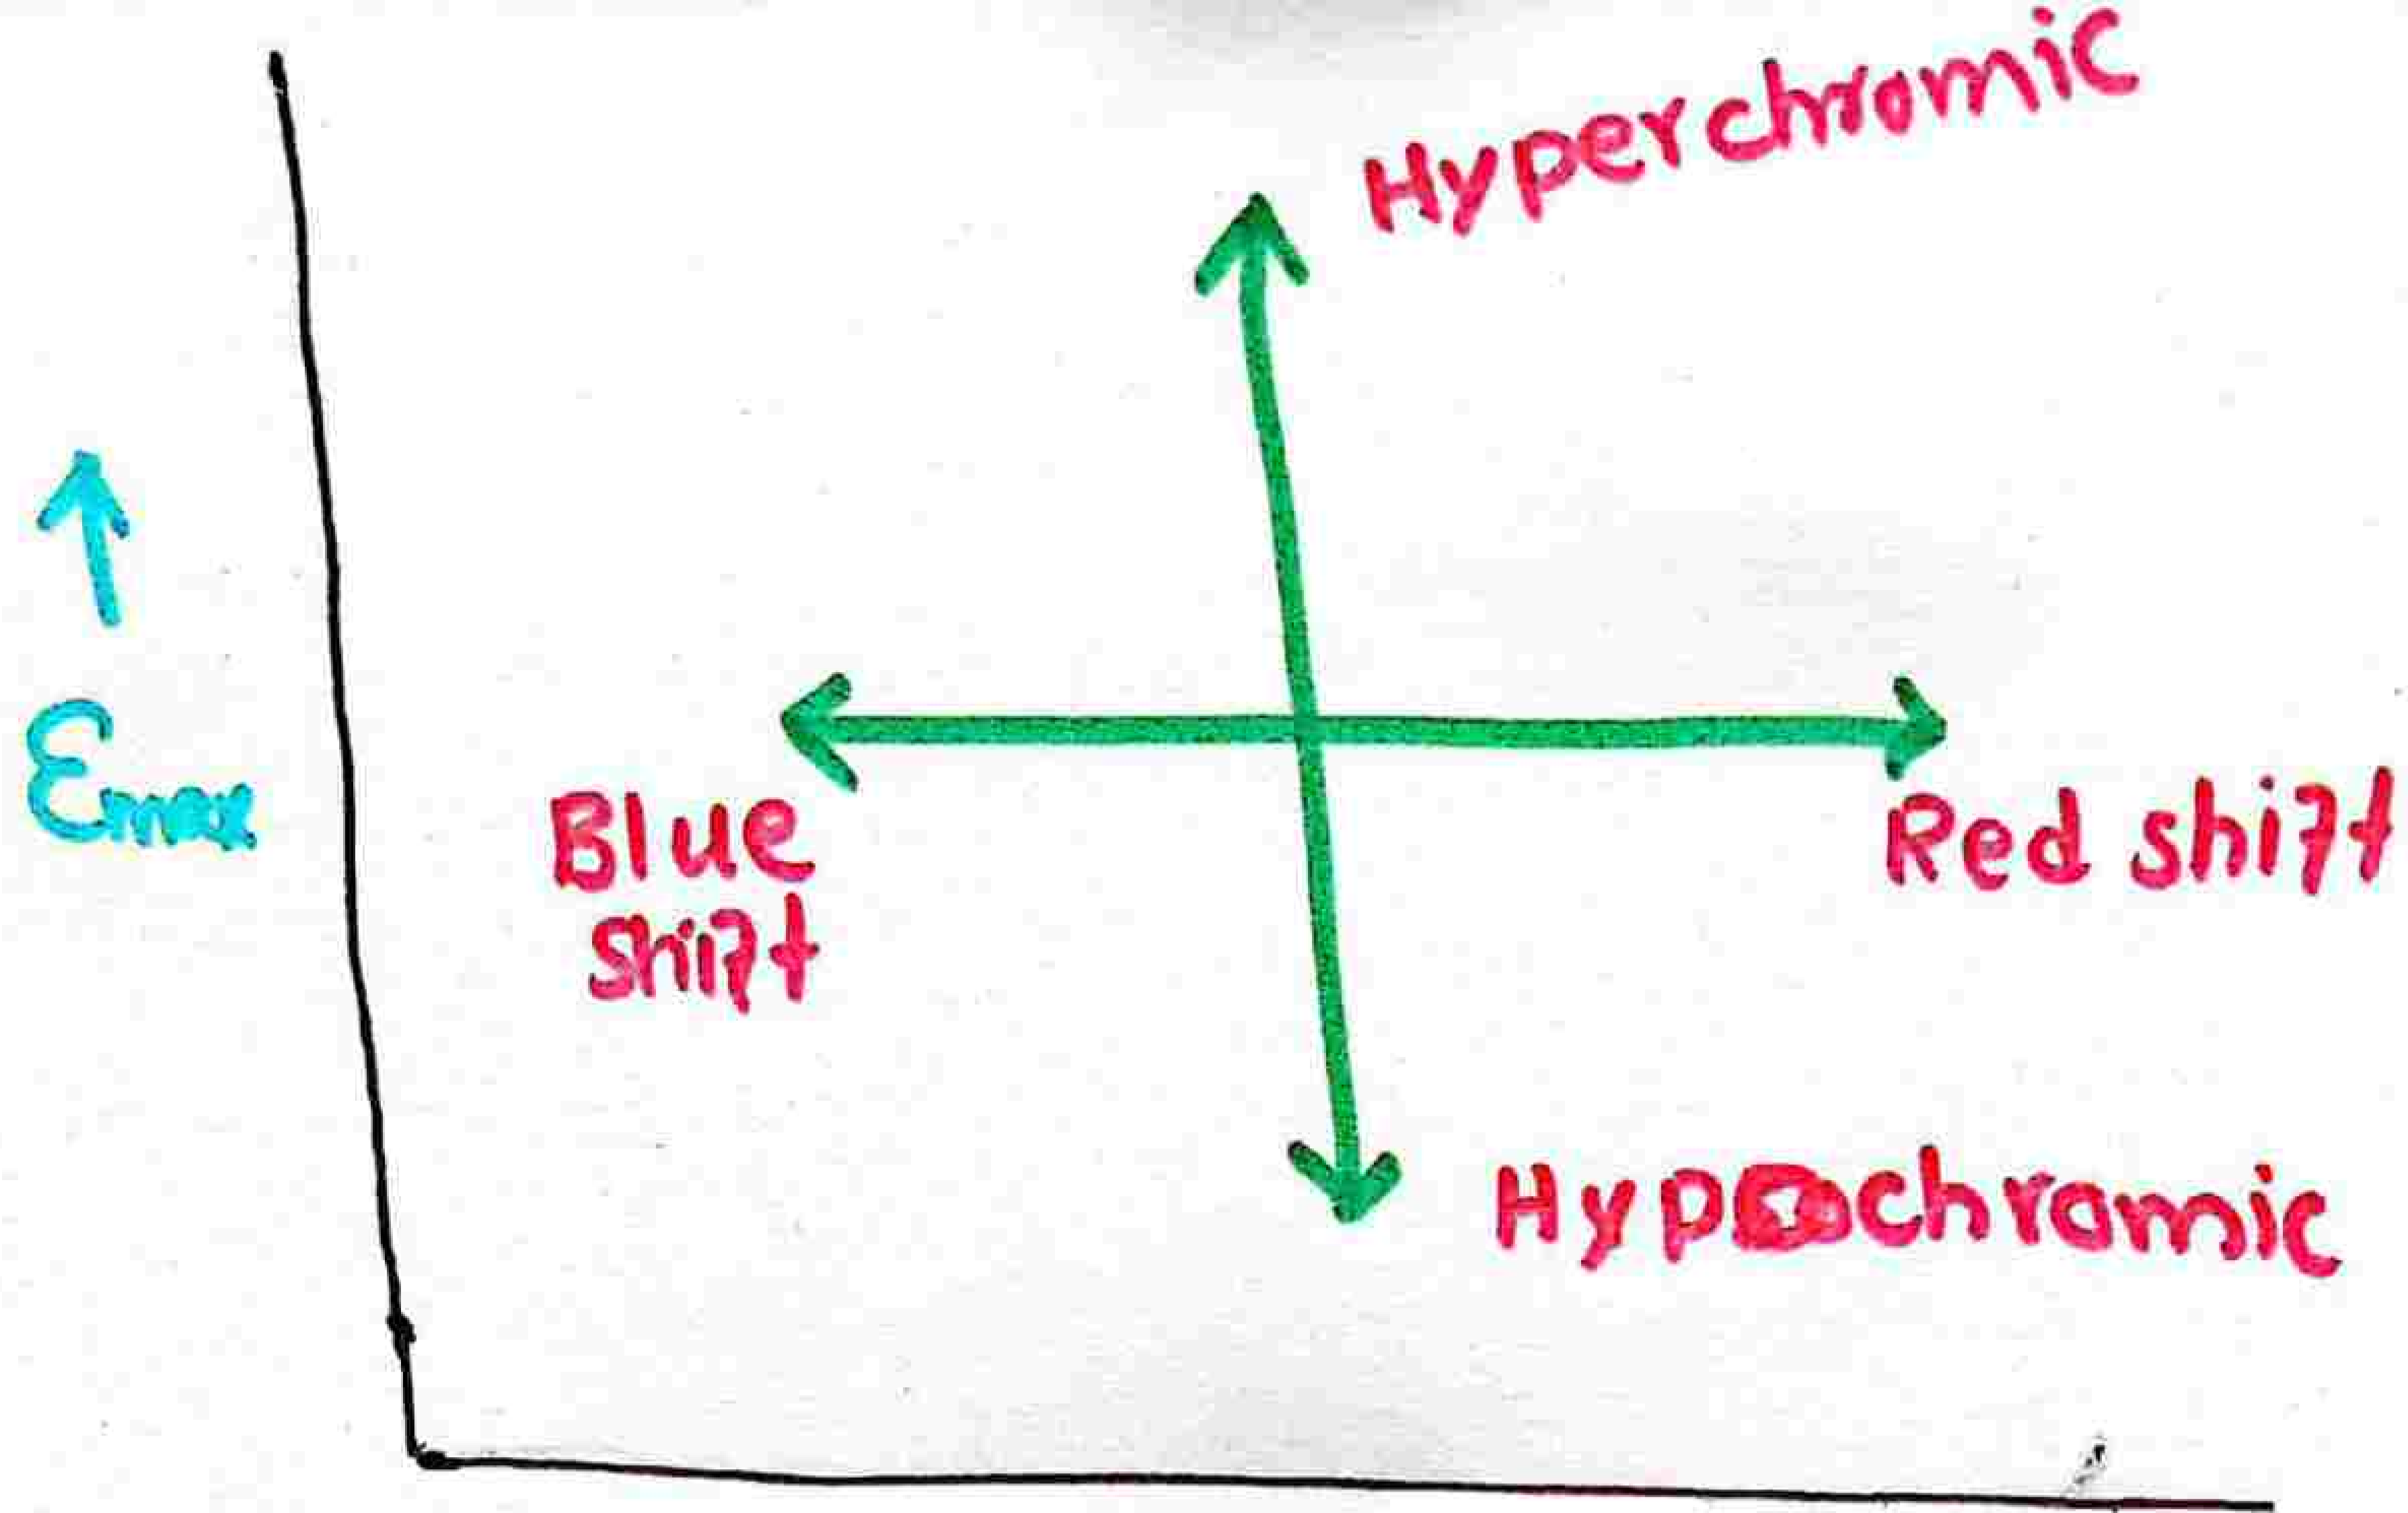 Hyperchromic
↑
Emax
Blue
shift
Red shift
Hypochromic